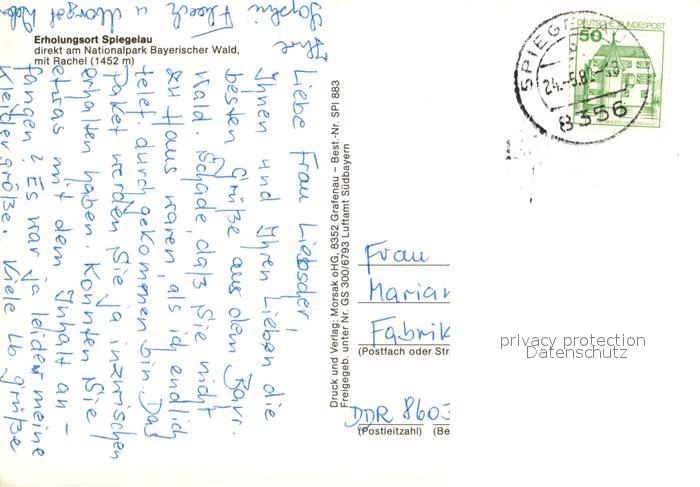 Erholungsort Spiegelau
direkt am Nationalpark Bayerischer Wald,
mit Rachel (1452 m)
Liebe Frau Liebscher,
Ihnen und Ihren Lieben die
besten Grüße aus dem Bayr.
Wald. Schade, daß Sie nicht
zu Haus waren, als ich endlich
telef. durchgekommen bin. Das
Paket werden Sie ja inzwischen
erhalten haben. Konnten Sie
etwas mit dem Inhalt an-
fangen? Es war ja leider meine
Kleidergröße. Viele lb Grüße
Ihre
u Margot
Druck und Verlag: Morsak oHG, 8352 Grafenau – Best.-Nr. SPI 883
Freigegeb. unter Nr. GS 300/6793 Luftamt Südbayern
DEUTSCHE BUNDESPOST
50
SPIEGELAU
8356
Frau
Marian
Fabrik
(Postfach oder Str
DDR 8603
(Postleitzahl) (Be
privacy protection
Datenschutz